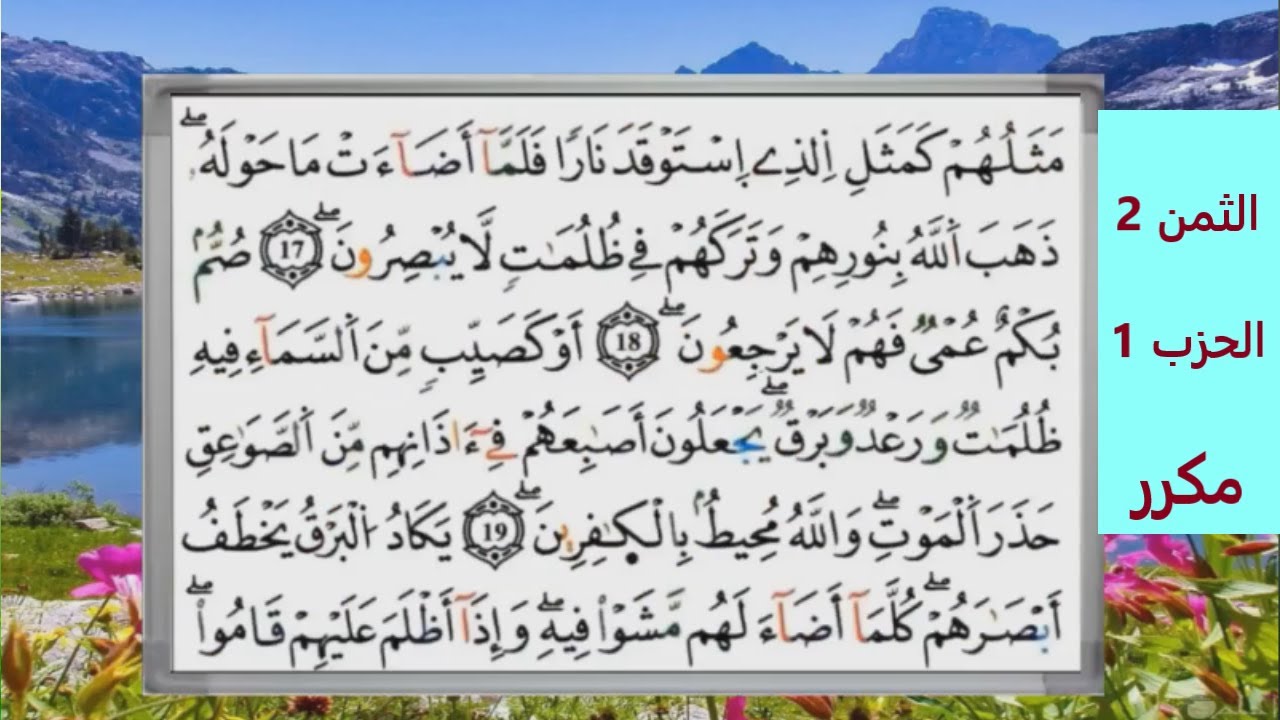 مَثَلُهُمْ كَمَثَلِ اِ۬لذِے اِ۪سْتَوْقَدَ نَارٗا فَلَمَّآ أَضَآءَتْ مَا حَوْلَهُۥۖ
ذَهَبَ اَ۬للَّهُ بِنُورِهِمْ وَتَرَكَهُمْ فِے ظُلُمَٰتٖ لَّا يُبْصِرُونَۖ 17 صُمُّۢ
بُكْمٌ عُمْيٞ فَهُمْ لَا يَرْجِعُونَۖ 18 أَوْ كَصَيِّبٖ مِّنَ اَ۬لسَّمَآءِ فِيهِ
ظُلُمَٰتٞ وَرَعْدٞ وَبَرْقٞۖ يَجْعَلُونَ أَصَٰبِعَهُمْ فِےٓ ءَاذَانِهِم مِّنَ اَ۬لصَّوَٰعِقِ
حَذَرَ اَ۬لْمَوْتِۖ وَاللَّهُ مُحِيطُۢ بِالْكٰ۪فِرِينَۖ 19 يَكَادُ اُ۬لْبَرْقُ يَخْطَفُ
أَبْصَٰرَهُمْۖ كُلَّمَآ أَضَآءَ لَهُم مَّشَوْاْ فِيهِۖ وَإِذَآ أَظْلَمَ عَلَيْهِمْ قَامُواْۖ
الثمن 2
الحزب 1
مكرر